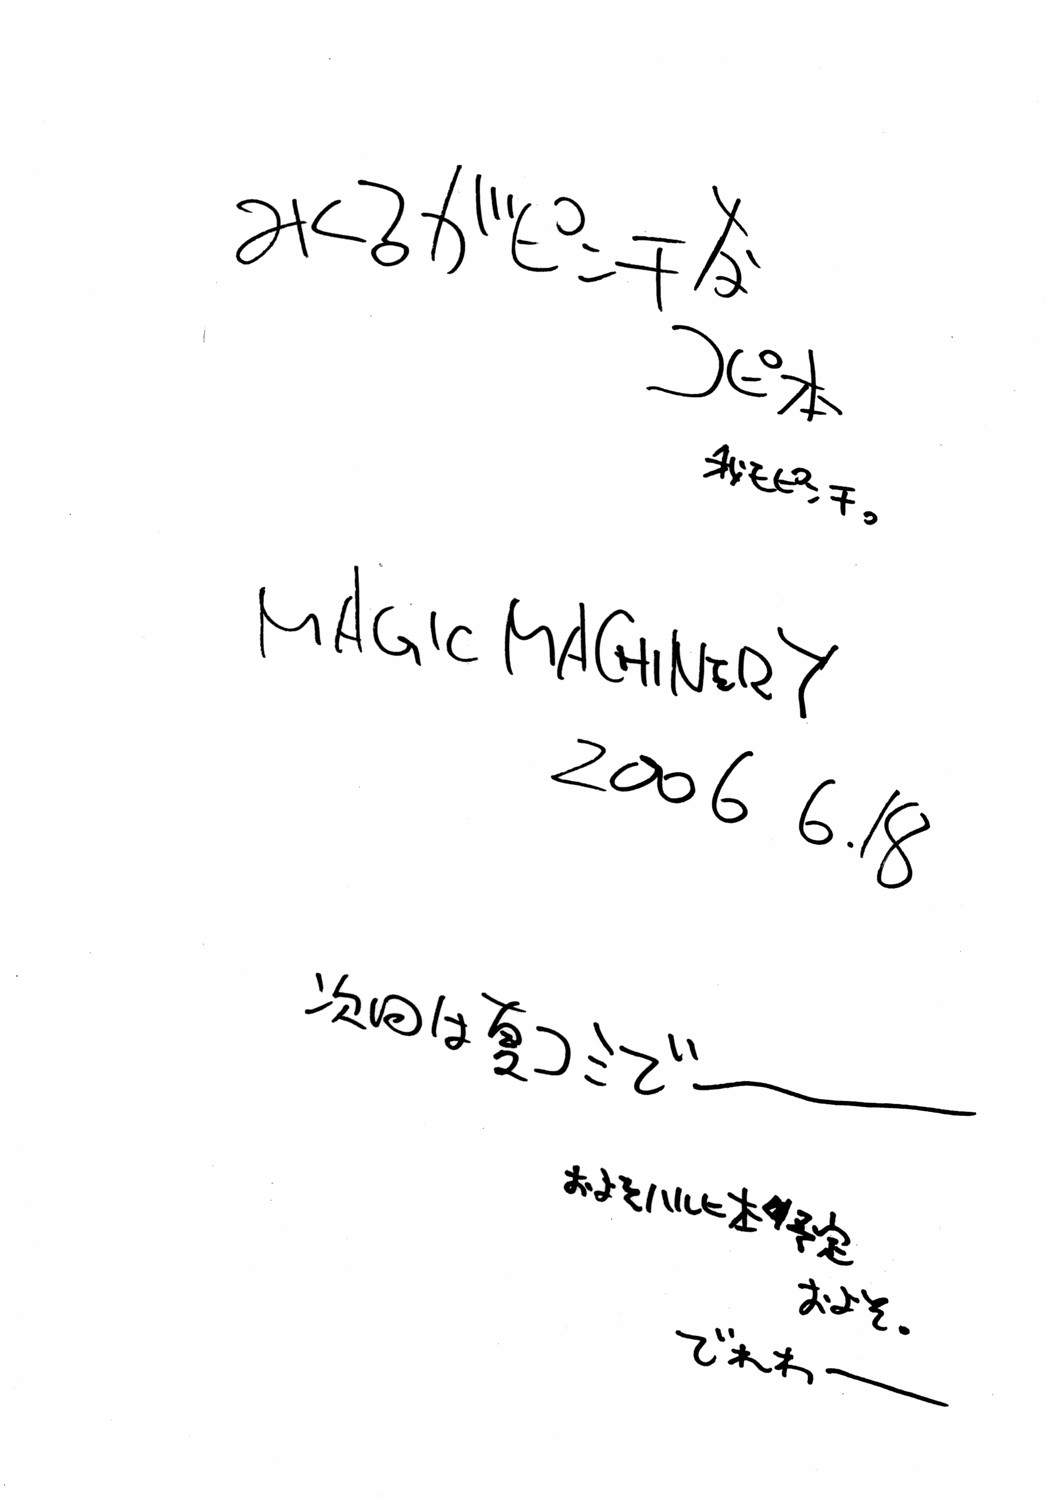 みくるがピンチだ
コピ本
我もピンチ。
MAGIC MACHINERY
2006 6.18
次回は夏コミで――
およそハルヒ本予定
およそ。
でわわー